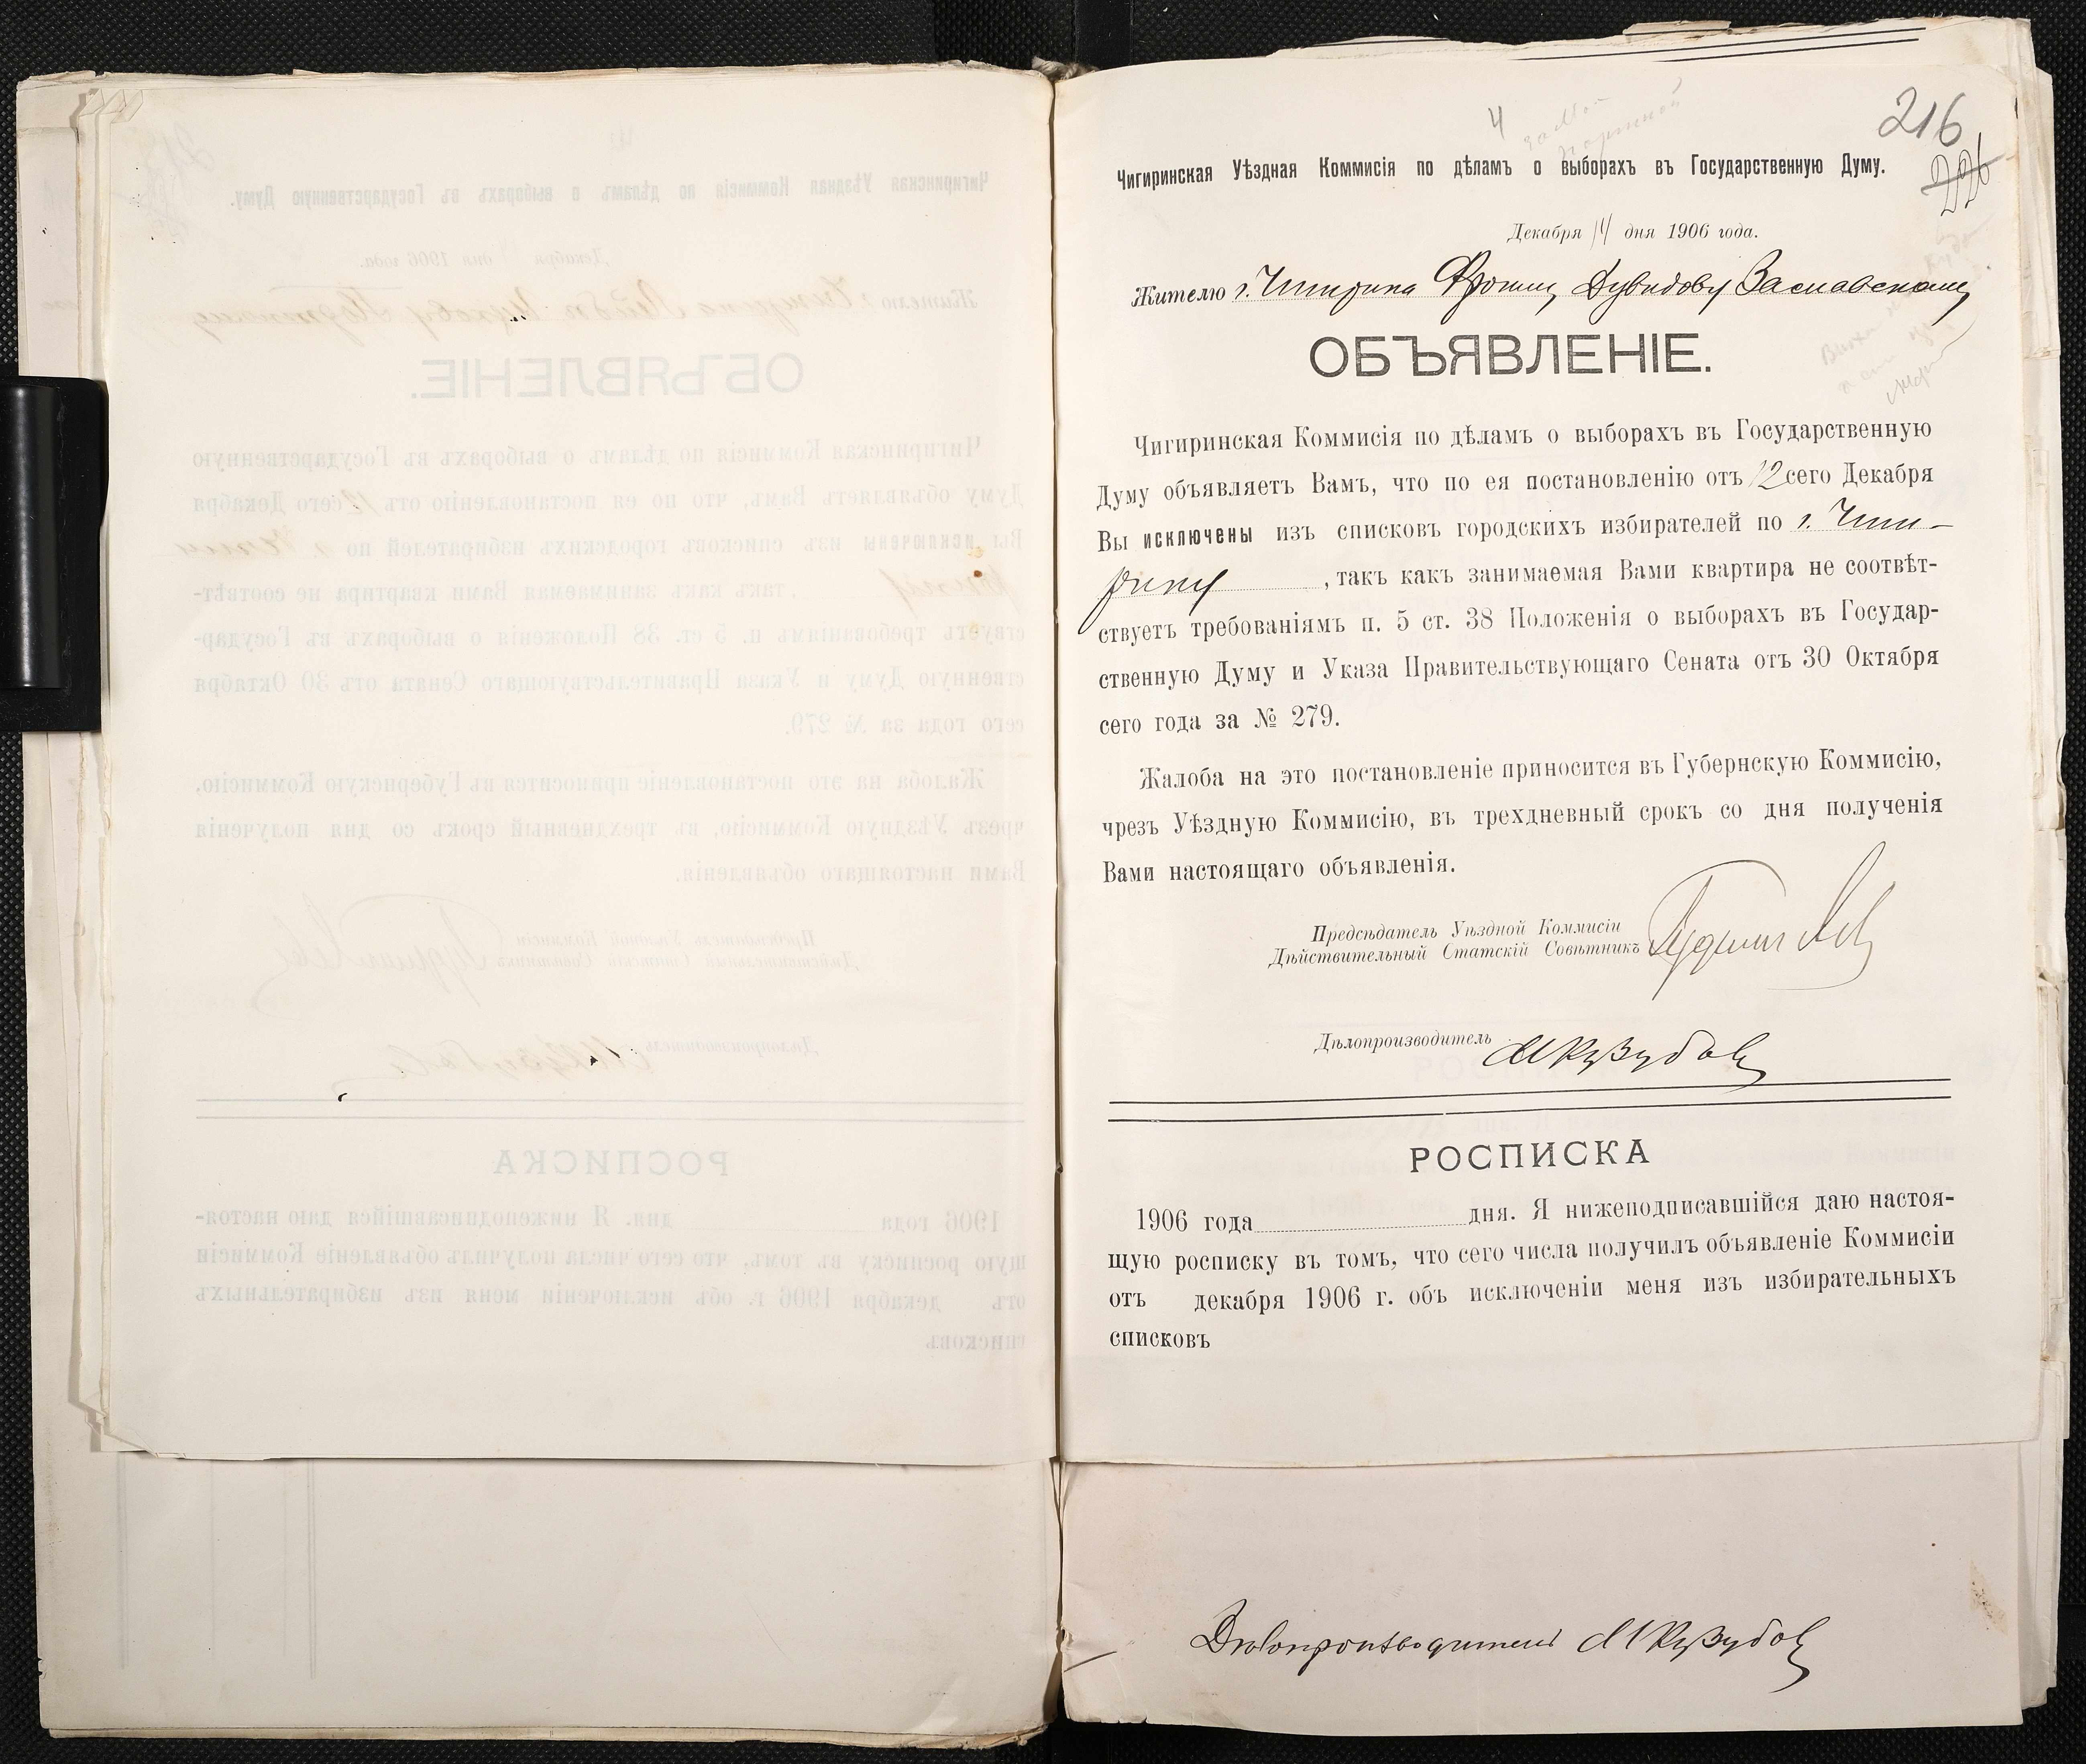 4
216
226
Чигиринская Уѣздная Коммисія по дѣламъ о выборахъ въ Государственную Думу.
Декабря 14 дня 1906 года.
Жителю г. Чигирина Фроиму Дувидову Заславскому
ОБЪЯВЛЕНІЕ.
Чигиринская Коммисія по дѣламъ о выборахъ въ Государственную
Думу объявляетъ Вамъ, что по ея постановленію отъ 12 сего Декабря
Вы исключены изъ списковъ городскихъ избирателей по г. Чиги-
рину, такъ какъ занимаемая Вами квартира не соотвѣт-
ствуетъ требованіямъ п. 5 ст. 38 Положенія о выборахъ въ Государ-
ственную Думу и Указа Правительствующаго Сената отъ 30 Октября
сего года за № 279.
Жалоба на это постановленіе приносится въ Губернскую Коммисію,
чрезъ Уѣздную Коммисію, въ трехдневный срокъ со дня полученія
Вами настоящаго объявленія.
Предсѣдатель Уѣздной Коммисіи
Дѣйствительный Статскій Совѣтникъ
Дѣлопроизводитель
РОСПИСКА
1906 года дня. Я нижеподписавшійся даю настоя-
щую росписку въ томъ, что сего числа получилъ объявленіе Коммисіи
отъ декабря 1906 г. объ исключеніи меня изъ избирательныхъ
списковъ
Дѣлопроизводитель